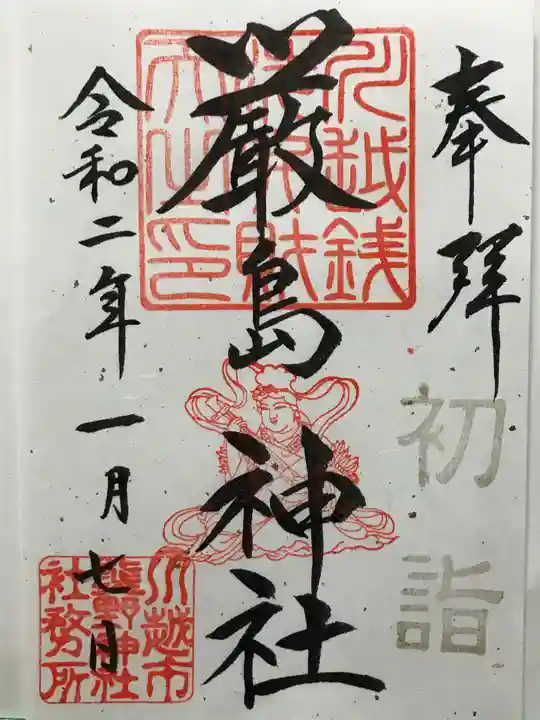 奉拝
初詣
川越銭
洗弁財
天之印
厳島神社
令和二年一月七日
川越市
熊野神社
社務所